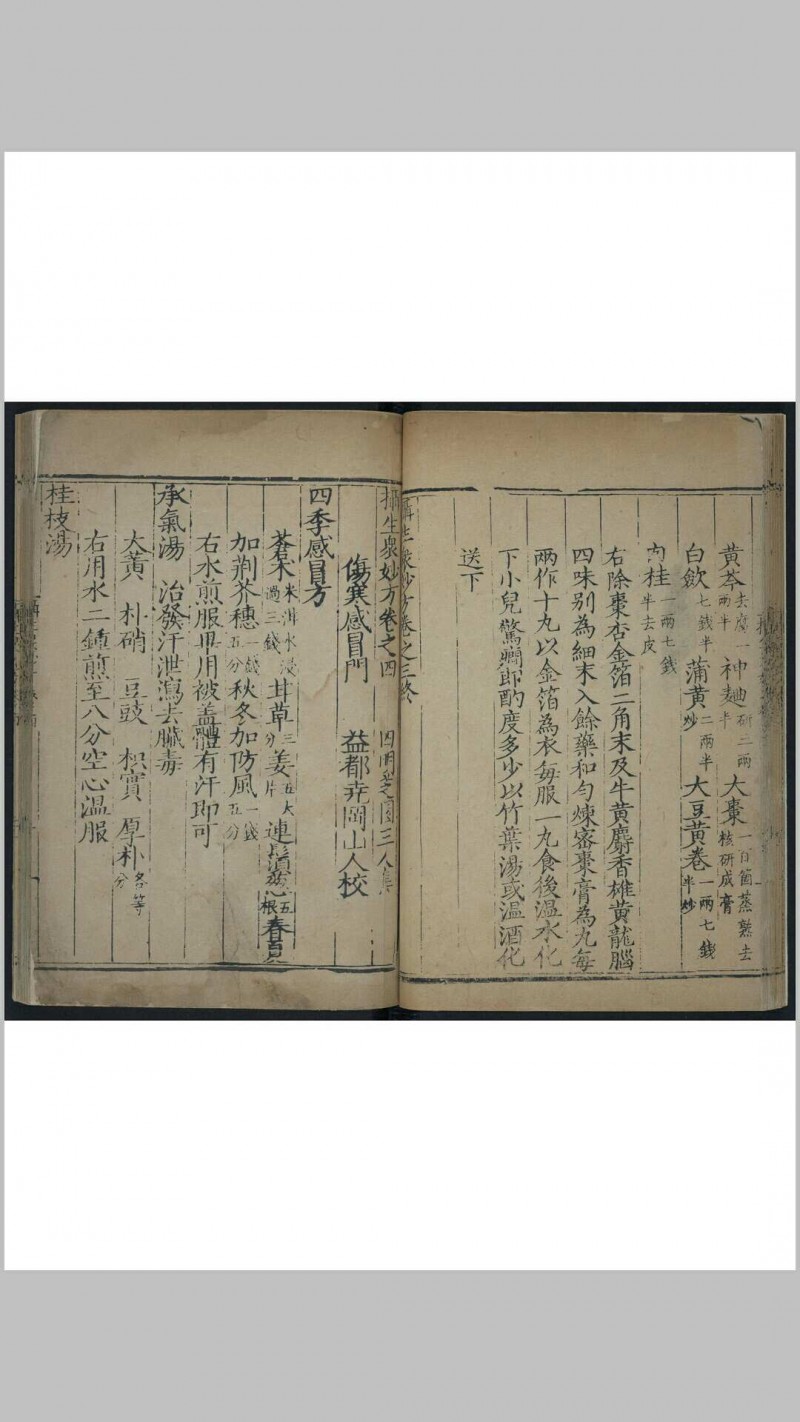 黃芩去腐一兩半 神麯研二兩半 大棗一百箇蒸熟去核研成膏
白歛七錢半 蒲黃二兩半炒 大豆黃卷一兩七錢半炒
肉桂一兩七錢半去皮
右除棗杏金箔二角末及牛黃麝香雄黃龍腦
四味別為細末入餘藥和勻煉蜜棗膏為丸每
兩作十丸以金箔為衣每服一丸食後溫水化
下小兒驚癇即酌度多少以竹葉湯或溫酒化
送下
攝生衆妙方卷之三終
攝生衆妙方卷之四 四明 三人集
傷寒感冒門 益都 岡山人校
四季感冒方
蒼朮米泔水浸過三錢 甘草三分 姜五大片 連鬚葱五根 春夏
加荆芥穗一錢五分 秋冬加防風一錢五分
右水煎服畢用被盖體有汗即可
承氣湯 治發汗泄瀉去臓毒
大黃 朴硝 豆豉 枳實 厚朴各等分
右用水二鍾煎至八分空心温服
桂枝湯